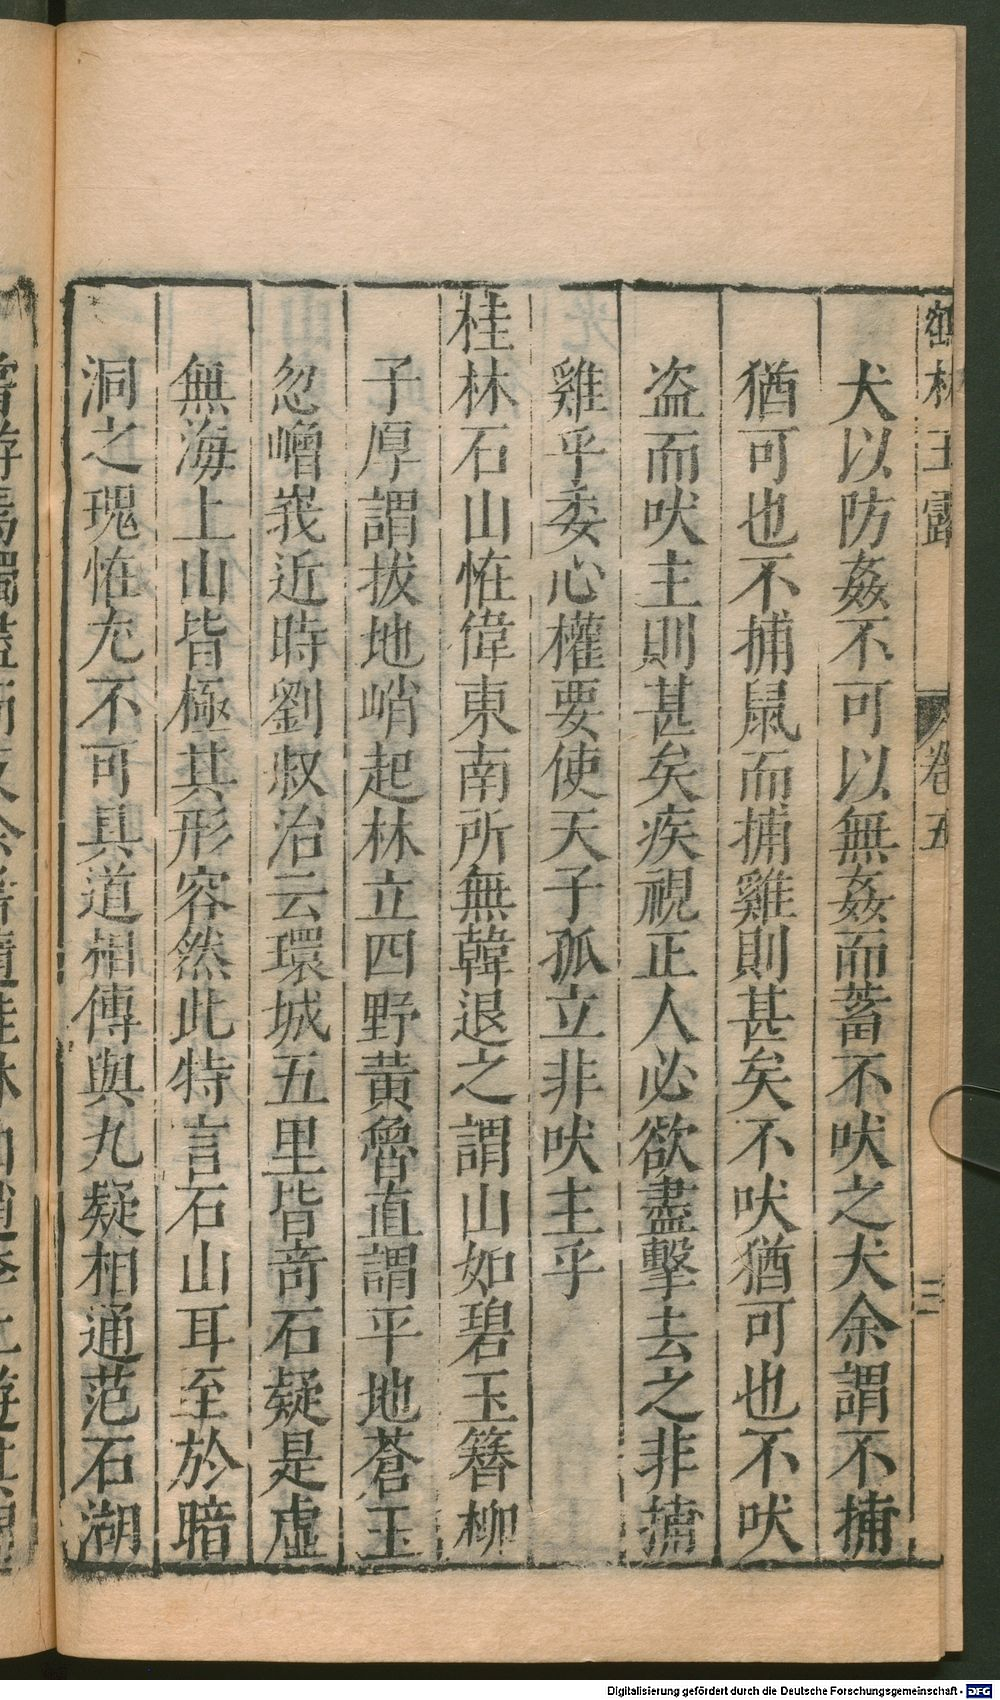 鶴林玉露
卷五
三
犬以防姦不可以無姦而蓄不吠之犬余謂不捕
猶可也不捕鼠而捕雞則甚矣不吠猶可也不吠
盗而吠主則甚矣疾視正人必欲盡擊去之非捕
雞乎委心權要使天子孤立非吠主乎
桂林石山恠偉東南所無韓退之謂山如碧玉簪柳
子厚謂拔地峭起林立四野黄魯直謂平地蒼玉
忽嶒峩近時劉叔治云環城五里皆奇石疑是虛
無海上山皆極其形容然此特言石山耳至於暗
洞之瑰恠尤不可具道相傳與九疑相通范石湖
Digitalisierung gefördert durch die Deutsche Forschungsgemeinschaft - DFG